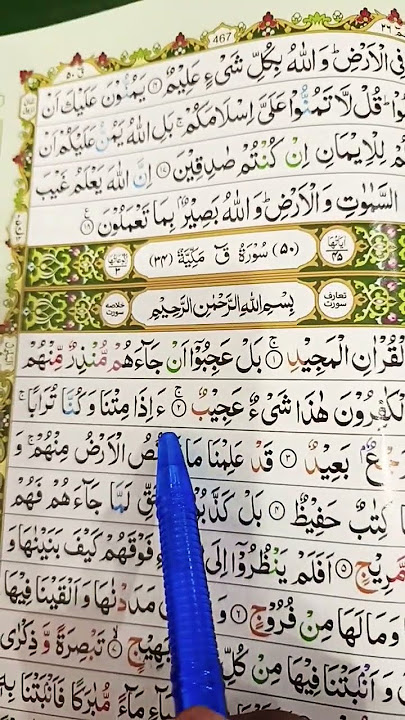 ٤٦٧
فِی الْاَرْضِ ؕ وَ اللّٰهُ بِكُلِّ شَیْءٍ عَلِیْمٌ ۝۱۶ یَمُنُّوْنَ عَلَیْكَ اَنْ
قُلْ لَّا تَمُنُّوْا عَلَیَّ اِسْلَامَكُمْ ۚ بَلِ اللّٰهُ یَمُنُّ عَلَیْكُمْ اَنْ
لِلْاِیْمَانِ اِنْ كُنْتُمْ صٰدِقِیْنَ ۝۱۷ اِنَّ اللّٰهَ یَعْلَمُ غَیْبَ
السَّمٰوٰتِ وَ الْاَرْضِ ؕ وَ اللّٰهُ بَصِیْرٌۢ بِمَا تَعْمَلُوْنَ ۝۱۸
اٰیَاتُهَا ٤٥ (٥٠) سُوْرَةُ قٓ مَكِّیَّةٌ (٣٤) ٣
تعارف سورت بِسْمِ اللّٰهِ الرَّحْمٰنِ الرَّحِیْمِ خلاصہ سورت
الْقُرْاٰنِ الْمَجِیْدِ ۝۱ بَلْ عَجِبُوْۤا اَنْ جَآءَهُمْ مُّنْذِرٌ مِّنْهُمْ
الْكٰفِرُوْنَ هٰذَا شَیْءٌ عَجِیْبٌ ۝۲ ءَاِذَا مِتْنَا وَ كُنَّا تُرَابًا ۚ
رَجْعٌۢ بَعِیْدٌ ۝۳ قَدْ عَلِمْنَا مَا الْاَرْضُ مِنْهُمْ ۚ وَ
كِتٰبٌ حَفِیْظٌ ۝۴ بَلْ لَمَّا جَآءَهُمْ فَهُمْ
مَّرِیْجٍ ۝۵ اَفَلَمْ یَنْظُرُوْۤا اِلَی فَوْقَهُمْ كَیْفَ بَنَیْنٰهَا وَ
وَ مَا لَهَا مِنْ فُرُوْجٍ ۝۶ مَدَدْنٰهَا وَ اَلْقَیْنَا فِیْهَا
وَ اَنْۢبَتْنَا فِیْهَا مِنْ كُلِّ بَهِیْجٍ ۝۷ تَبْصِرَةً وَّ ذِكْرٰی
مَآءً مُّبٰرَكًا فَاَنْۢبَتْنَا بِهٖ